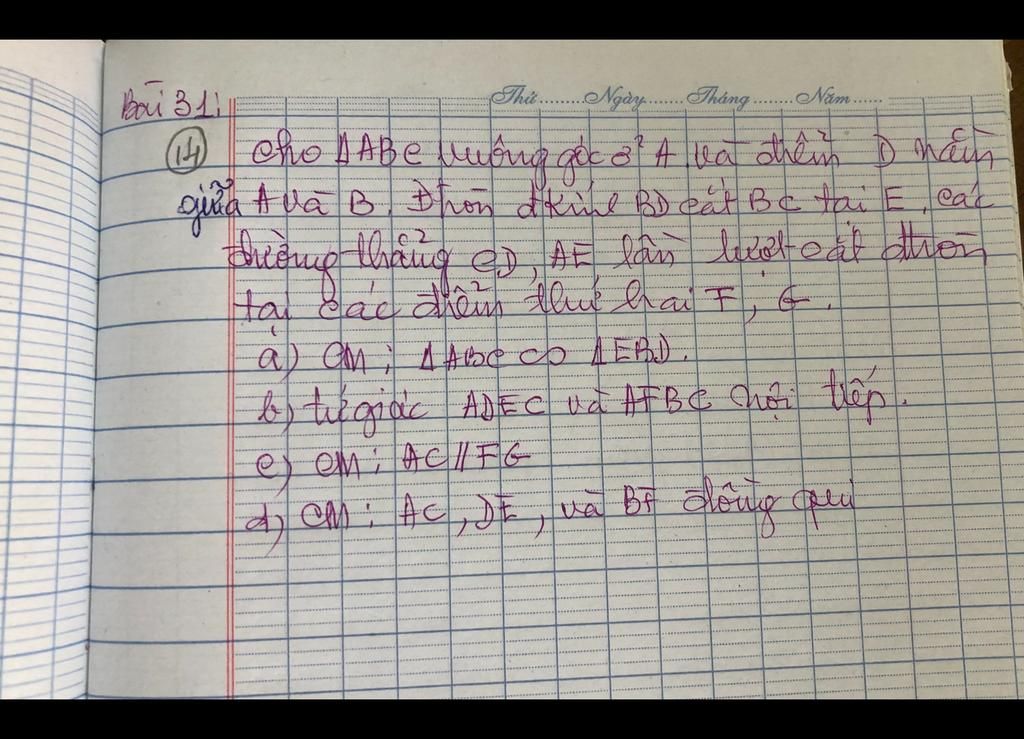 Bài 31:
Thứ........Ngày........Tháng........Năm......
14 Cho ΔABC vuông góc ở A và điểm D nằm
giữa A và B. Đtròn đkính BD cắt BC tại E, các
đường thẳng CD, AE, lần lượt cắt đtròn
tại các điểm thứ hai F, G.
a) CM: ΔABC ∽ ΔEBD.
b) tứ giác ADEC và AFBC nội tiếp.
c) CM: AC // FG
d) CM: AC, DE, và BF đồng qui